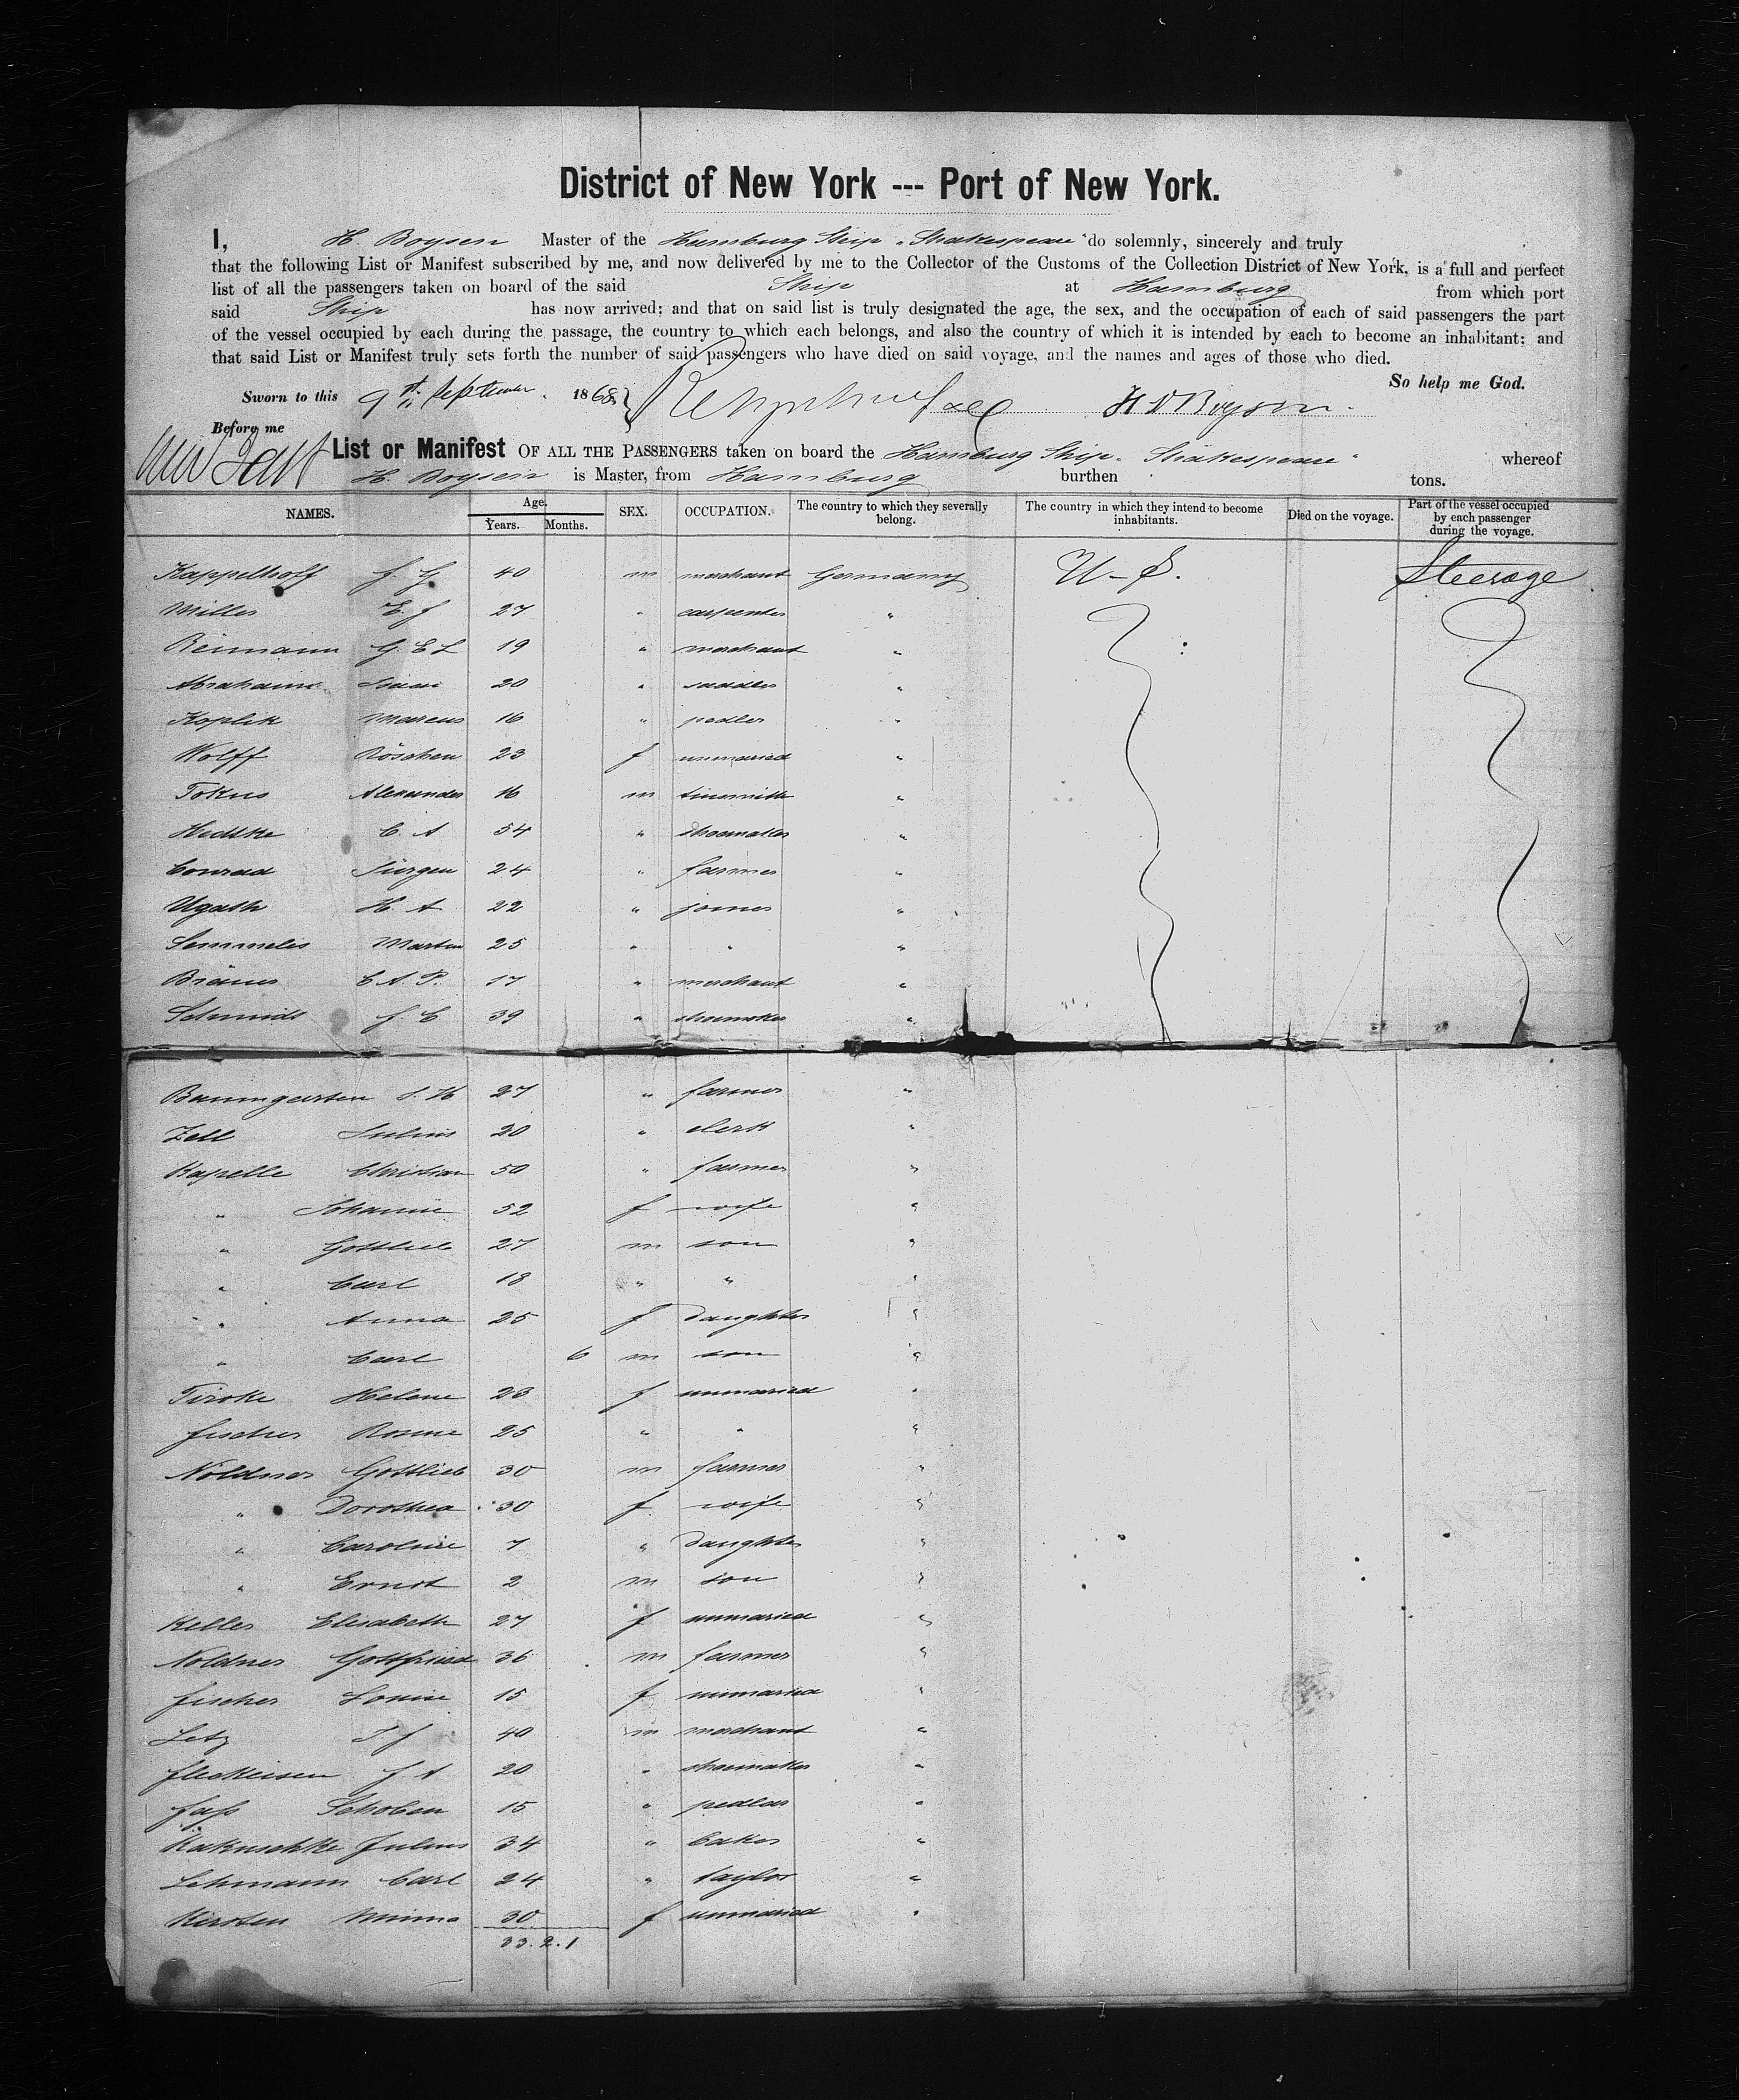 District of New York --- Port of New York.
I, H. Boysen Master of the Hamburg Ship "Shakespeare" do solemnly, sincerely and truly
that the following List or Manifest subscribed by me, and now delivered by me to the Collector of the Customs of the Collection District of New York, is a full and perfect
list of all the passengers taken on board of the said Ship at Hamburg from which port
said Ship has now arrived; and that on said list is truly designated the age, the sex, and the occupation of each of said passengers the part
of the vessel occupied by each during the passage, the country to which each belongs, and also the country of which it is intended by each to become an inhabitant; and
that said List or Manifest truly sets forth the number of said passengers who have died on said voyage, and the names and ages of those who died.
So help me God.
Sworn to this 9th September 1868 H Boysen.
Before me
List or Manifest OF ALL THE PASSENGERS taken on board the Hamburg Ship "Shakespeare" whereof
H. Boysen is Master, from Hamburg burthen tons.
NAMES. Age. Years. Months. SEX. OCCUPATION. The country to which they severally belong. The country in which they intend to become inhabitants. Died on the voyage. Part of the vessel occupied by each passenger during the voyage.
Kappelhoff J. G. 40 m merchant Germany U-S. Steerage
Miller E. J 27 " carpenter "
Reimann G. E L 19 " merchant "
Abrahams Isaac 20 " saddler "
Koplik Marcus 16 " pedler "
Wolff Röschen 23 f unmaried "
Tokus Alexander 16 m tinsmith "
Hedtke C. A 54 " shoemaker "
Conrad Jürgen 24 " farmer "
Ugath H. A 22 " joiner "
Semmelis Martin 25 " " "
Bräuer C A. P. 17 " merchant "
Schmidt J. C 39 " shoemaker "
Baumgarten J. H 27 " farmer "
Zell Julius 20 " clerk "
Kapelle Christian 50 " farmer "
" Johanne 52 f wife "
" Gottlieb 27 m son "
" Carl 18 " " "
" Anna 25 f daughter "
" Carl 6 m son "
Tiroke Helene 23 f unmaried "
Fischer Rosine 25 " " "
Noldner Gottlieb 30 m farmer "
" Dorothea 30 f wife "
" Caroline 7 " daughter "
" Ernst 2 m son "
Keller Elisabeth 27 f unmaried "
Noldner Gottfried 36 m farmer "
Fischer Louise 15 f unmaried "
Letz J J 40 m merchant "
Fleckeisen J. A 20 " shoemaker "
Fass Schoben 15 " pedlar "
Kakuschke Julius 34 " baker "
Lehmann Carl 24 " taylor "
Kirsten Minna 30 f unmaried "
33. 2. 1